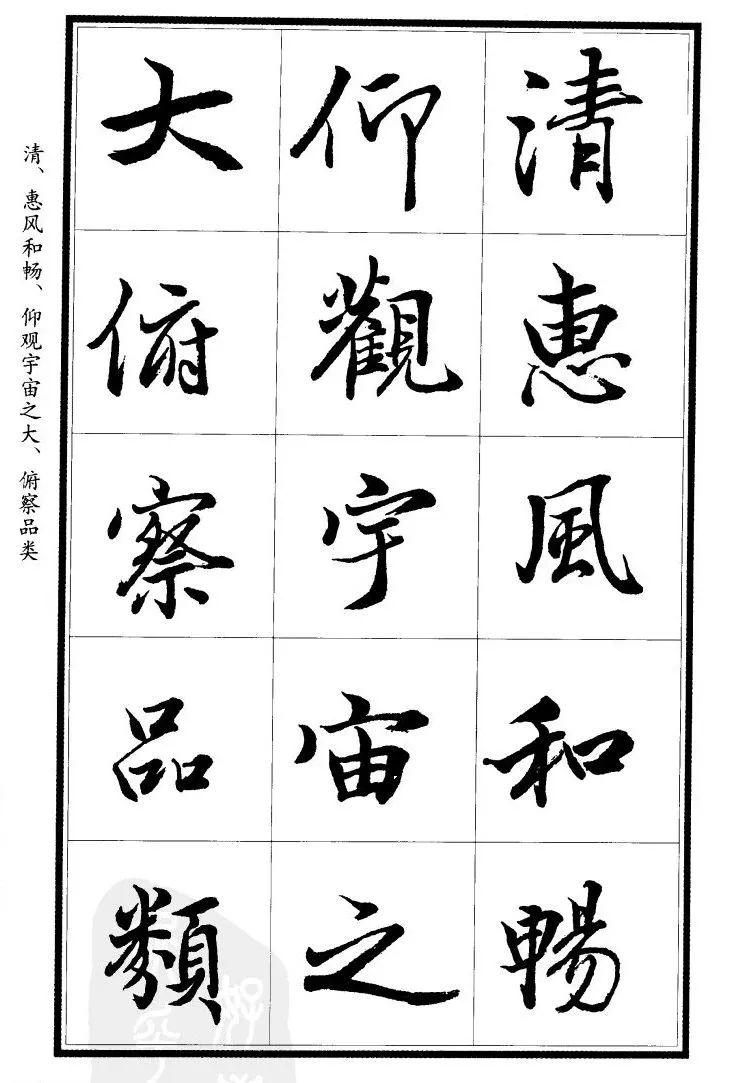 清惠風和暢
仰觀宇宙之
大俯察品類
清、惠风和畅、仰观宇宙之大、俯察品类